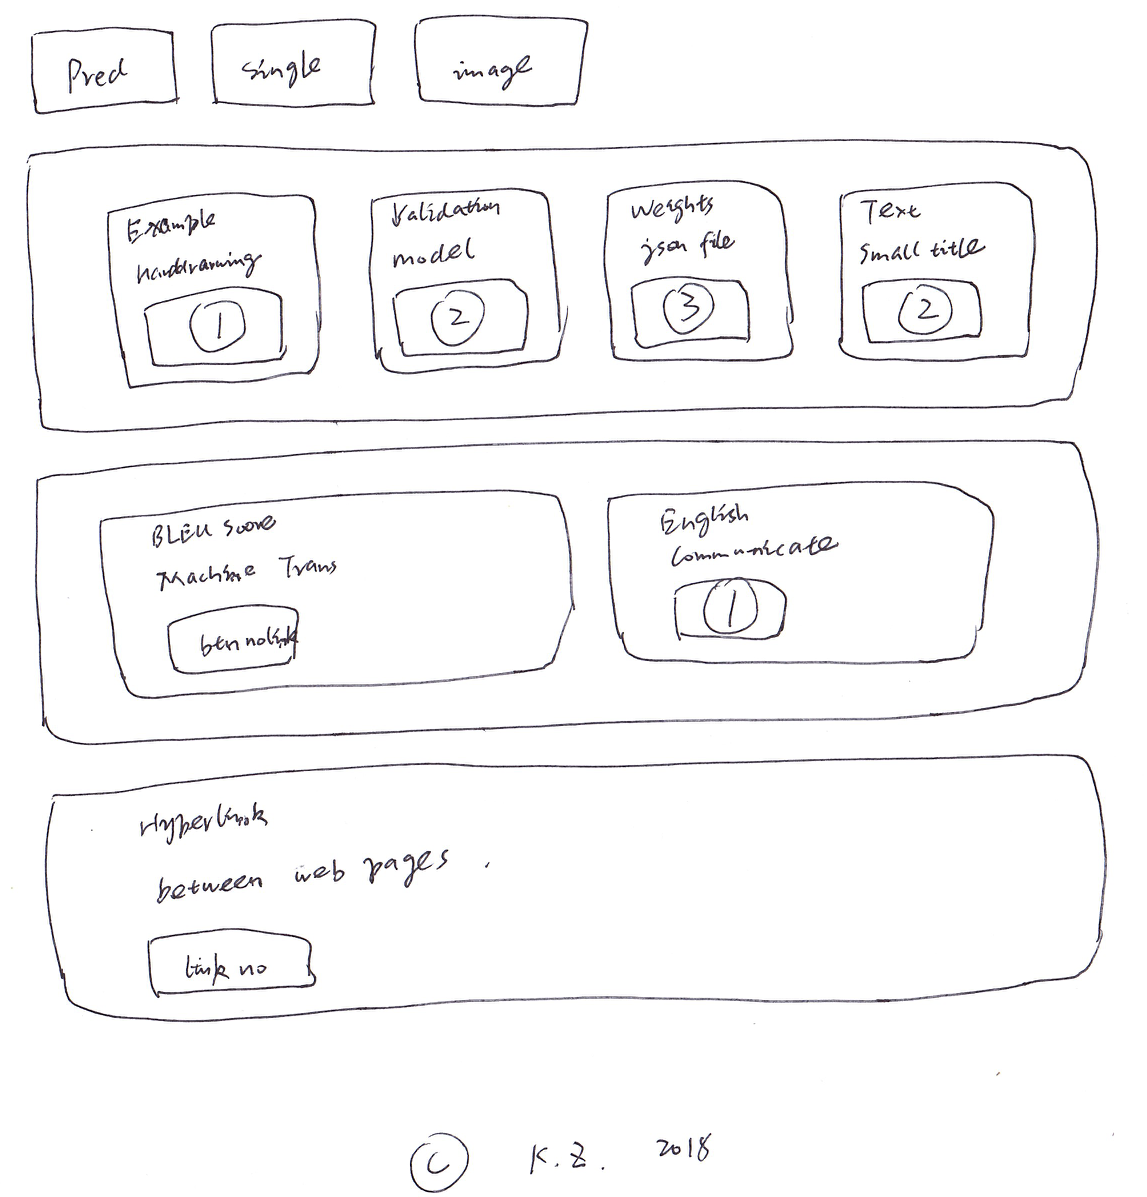 Pred single image
Example
Handdrawing
1
Validation
model
2
Weights
json file
3
Text
Small title
2
BLEU Score
Machine Trans
btn nolink
English
Communicate
1
Hyperlink
between web pages .
Link no
© K.Z. 2018